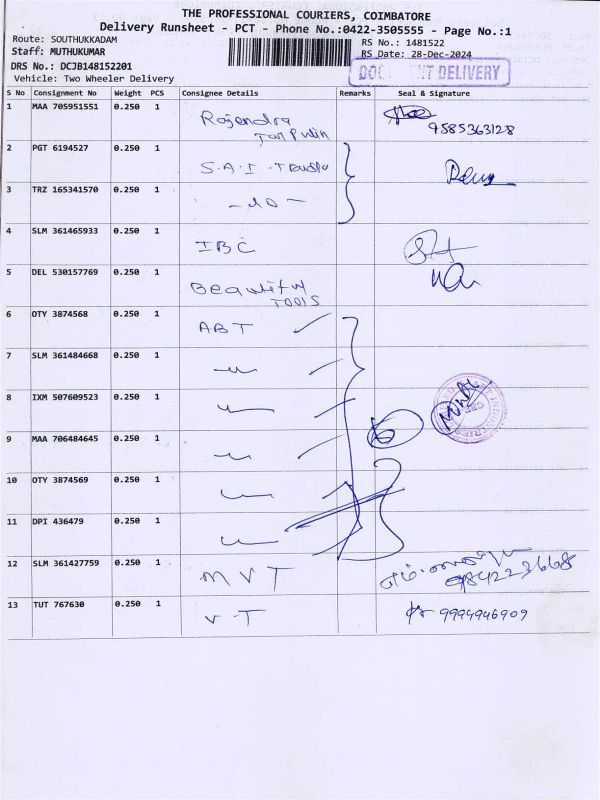 THE PROFESSIONAL COURIERS, COIMBATORE
Delivery Runsheet - PCT - Phone No.:0422-3505555 - Page No.:1
Route: SOUTHUKKADAM
RS No.: 1481522
Staff: MUTHUKUMAR
RS Date: 28-Dec-2024
DRS No.: DCJB148152201
DELIVERY
Vehicle: Two Wheeler Delivery
S No Consignment No Weight PCS Consignee Details Remarks Seal & Signature
1 MAA 705951551 0.250 1 Rajendra
9585363128
2 PGT 6194527 0.250 1 S.A.I.
3 TRZ 165341570 0.250 1 -do-
4 SLM 361465933 0.250 1 IBC
5 DEL 530157769 0.250 1 Beautiful
TOOLS
6 OTY 3874568 0.250 1 ABT
7 SLM 361484668 0.250 1
8 IXM 507609523 0.250 1
9 MAA 706484645 0.250 1
10 OTY 3874569 0.250 1
11 DPI 436479 0.250 1
12 SLM 361427759 0.250 1 MVT
13 TUT 767630 0.250 1 V.T 9994946909